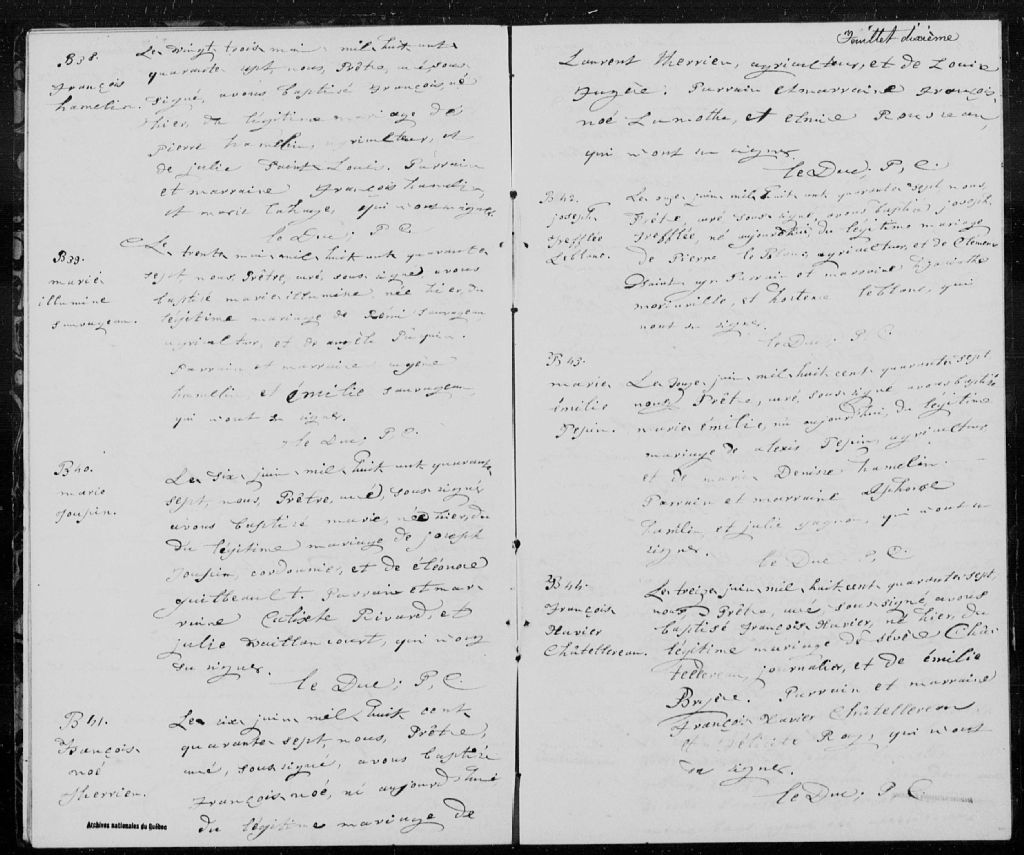 B 38.
François
hamelin.
Le vingt trois mai mil huit cent
quarante sept, nous, Prêtre, curé sous-
signé, avons baptisé François, né
hier, du légitime mariage de
Pierre hamelin, agriculteur, et
de julie Saint Louis. Parrain
et marraine François hamelin,
et marie Lahaye, qui n'ont su signer.
le Duc; P, C.
B 39.
marie
illumine
sauvageau.
Le trente mai mil huit cent quarante
sept, nous, Prêtre, curé, sous-signé avons
baptisé marie illumine, née hier, du
légitime mariage de Rémi sauvageau
agriculteur, et de angèle Pâquin.
Parrain et marraine eugène
hamelin, et émélie sauvageau
qui n'ont su signer.
le Duc; P, C.
B 40.
marie
Joupin.
Le six juin mil huit cent quarante
sept, nous, Prêtre, curé, sous-signé
avons baptisé marie, née hier, du
du légitime mariage de joseph
Joupin, cordonnier, et de éléonore
guilbeault. Parrain et mar-
raine Calixte Rivard, et
julie Vaillancourt, qui n'ont
su signer.
le Duc; P, C.
B 41.
François
noé
Therrien.
Le six juin mil huit cent
quarante sept, nous, Prêtre,
curé, sous-signé, avons baptisé
François noé, né aujourd'hui
du légitime mariage de
Archives nationales du Québec
Feuillet dixième
Laurent Therrien, agriculteur, et de Louise
Parrain et marraine François
noé Lamothe, et Rousseau,
qui n'ont su signer.
le Duc; P, C.
B 42.
joseph
Trefflée
Leblanc.
Le juin mil huit cent quarante sept nous,
Prêtre, curé sous-signé, avons baptisé joseph
Trefflée, né aujourd'hui, du légitime mariage
de Pierre le Blanc, agriculteur, et de
Parrain et marraine
et hortense leblanc, qui
n'ont su signer.
le Duc; P, C.
B 43.
marie
émilie
Pepin.
Le douze juin mil huit cent quarante sept
nous Prêtre, curé, sous-signé avons baptisé
marie émilie, née aujourd'hui, du légitime
mariage de alexis Pepin, agriculteur
et de marie Denise hamelin.
Parrain et marraine alphonse
hamelin, et julie gagnon, qui n'ont su
signer.
le Duc; P, C.
B 44.
François
Xavier
Châtellereau.
Le treize juin mil huit cent quarante sept,
nous Prêtre, curé sous-signé, avons
baptisé François Xavier, né hier, du
légitime mariage de Châ-
tellereau, journalier, et de émilie
Bruyère. Parrain et marraine
François Xavier Châtellereau,
et Félicité Roy, qui n'ont
su signer.
le Duc; P, C.